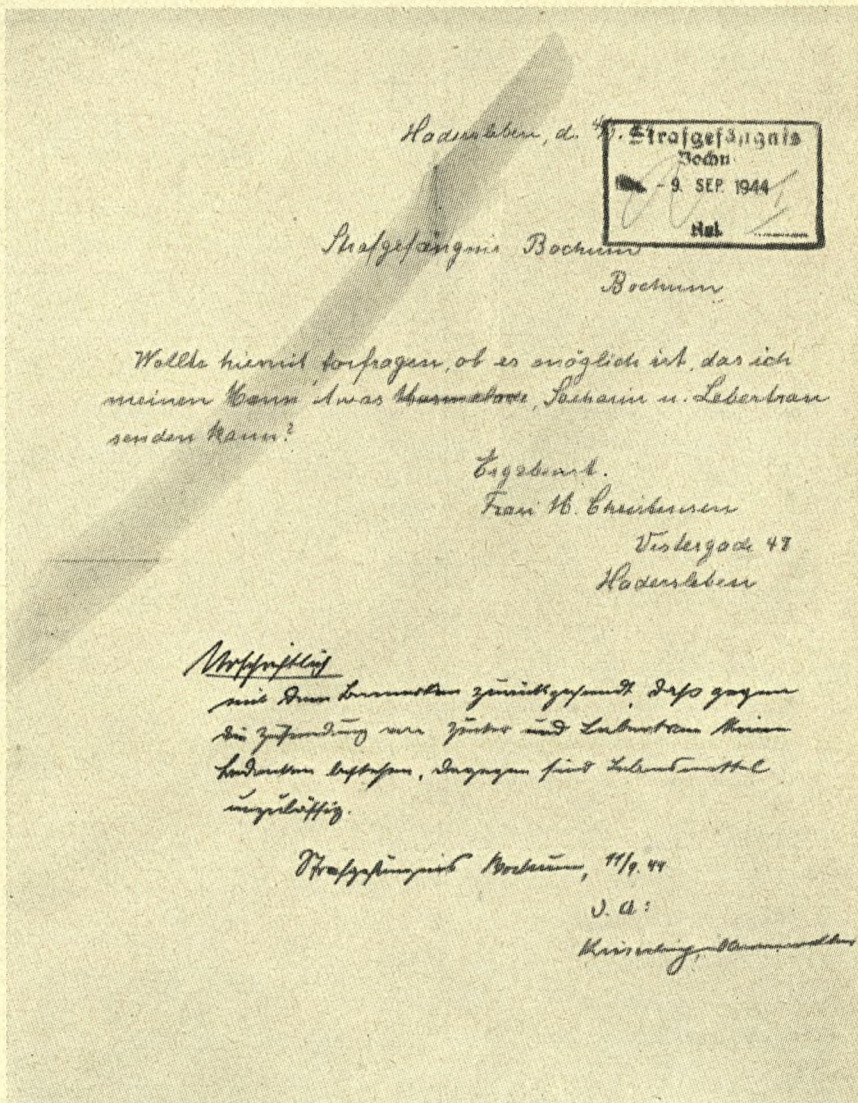 Hadersleben, d. 4/9. 44
Strafgefängnis
Bochu
- 9. SEP. 1944
Strafgefängnis Bochum
Bochum
Wollte hiermit anfragen, ob es möglich ist, das ich
meinen Mann etwas Marmelade, Sacharin u. Lebertran
senden kann?
Ergebenst.
Frau M. Christensen
Vestergade 48
Hadersleben
Urschriftlich
mit dem Bemerken zurückgesandt, daß gegen
die Zusendung von Zucker und Lebertran keine
Bedenken bestehen, dagegen sind Lebensmittel
unzulässig.
Strafgefängnis Bochum, 11/9. 44
I. A: